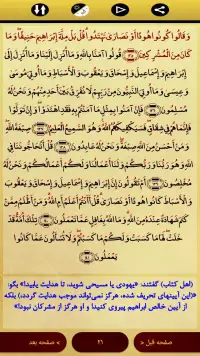 وَقَالُوا كُونُوا هُودًا أَوْ نَصَارَىٰ تَهْتَدُوا قُلْ بَلْ مِلَّةَ إِبْرَاهِيمَ حَنِيفًا وَمَا
كَانَ مِنَ الْمُشْرِكِينَ ﴿۱۳۵﴾ قُولُوا آمَنَّا بِاللَّهِ وَمَا أُنْزِلَ إِلَيْنَا وَمَا أُنْزِلَ إِلَىٰ
إِبْرَاهِيمَ وَإِسْمَاعِيلَ وَإِسْحَاقَ وَيَعْقُوبَ وَالْأَسْبَاطِ وَمَا أُوتِيَ مُوسَىٰ
وَعِيسَىٰ وَمَا أُوتِيَ النَّبِيُّونَ مِنْ رَبِّهِمْ لَا نُفَرِّقُ بَيْنَ أَحَدٍ مِنْهُمْ وَنَحْنُ لَهُ
مُسْلِمُونَ ﴿۱۳۶﴾ فَإِنْ آمَنُوا بِمِثْلِ مَا آمَنْتُمْ بِهِ فَقَدِ اهْتَدَوْا وَإِنْ تَوَلَّوْا
فَإِنَّمَا هُمْ فِي شِقَاقٍ فَسَيَكْفِيكَهُمُ اللَّهُ وَهُوَ السَّمِيعُ الْعَلِيمُ ﴿۱۳۷﴾ صِبْغَةَ اللَّهِ
وَمَنْ أَحْسَنُ مِنَ اللَّهِ صِبْغَةً وَنَحْنُ لَهُ عَابِدُونَ ﴿۱۳۸﴾ قُلْ أَتُحَاجُّونَنَا فِي
اللَّهِ وَهُوَ رَبُّنَا وَرَبُّكُمْ وَلَنَا أَعْمَالُنَا وَلَكُمْ أَعْمَالُكُمْ وَنَحْنُ لَهُ
مُخْلِصُونَ ﴿۱۳۹﴾ أَمْ تَقُولُونَ إِنَّ إِبْرَاهِيمَ وَإِسْمَاعِيلَ وَإِسْحَاقَ وَيَعْقُوبَ
وَالْأَسْبَاطَ كَانُوا هُودًا أَوْ نَصَارَىٰ قُلْ أَأَنْتُمْ أَعْلَمُ أَمِ اللَّهُ وَمَنْ أَظْلَمُ مِمَّنْ
كَتَمَ شَهَادَةً عِنْدَهُ مِنَ اللَّهِ وَمَا اللَّهُ بِغَافِلٍ عَمَّا تَعْمَلُونَ ﴿۱۴۰﴾ تِلْكَ أُمَّةٌ قَدْ
خَلَتْ لَهَا مَا كَسَبَتْ وَلَكُمْ مَا كَسَبْتُمْ وَلَا تُسْأَلُونَ عَمَّا كَانُوا
يَعْمَلُونَ ﴿۱۴۱﴾
(اهل کتاب) گفتند: «یهودی یا مسیحی شوید، تا هدایت یابید!» بگو:
«(این آیینهای تحریف شده، هرگز نمی‌تواند موجب هدایت گردد،) بلکه
از آیین خالص ابراهیم پیروی کنید! و او هرگز از مشرکان نبود!»
صفحه قبل > ۲۱ < صفحه بعد